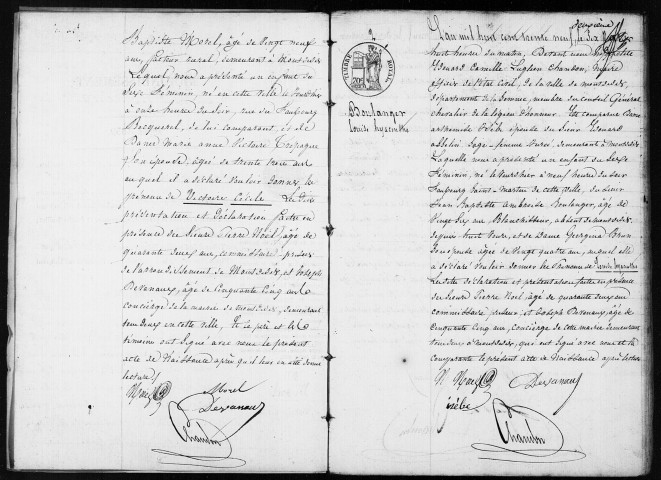 Baptiste Morel, âgé de Vingt neuf
ans, facteur rural, demeurant à Montdidier
Lequel nous a présenté un enfant du
Sexe Féminin, né en cette ville
à onze heure du soir, rue du Faubourg
Becquerel, de lui comparant et de
Dame marie anne Victoire
son épouse, âgée de trente trois ans
auquel il a déclaré Vouloir donner le
prénoms de Victoire Cécile Les dites
présentation et Déclaration faites en
présence du sieur Pierre Noël, âgé de
quarante deux ans, commissaire priseur
de l'arrondissement de Montdidier et Joseph
Devenaux, âgé de Cinquante Cinq ans
concierge de la mairie de montdidier, demeurant
tous deux en cette ville, et le père et les
témoins ont signé avec nous le présent
acte de Naissance après qu'il leur en a été donné
lecture
Morel
Noel
Devenaux
Chandon
2
TIMBRE ROYAL
Boulanger
Louise hyacinthe
deuxième
L'an mil huit cent trente neuf, le Six
huit heure du matin, Devant nous
Edouard Camille Luglien Chandon, maire
officier de l'état civil, de la ville de montdidier,
département de la Somme, membre du conseil Général
chevalier de la légion d'honneur. Est comparue Dame
épouse du Sieur Edouard
Sage-femme Jurée, demeurant à montdidier
Laquelle nous a présenté un enfant du Sexe
Féminin, né à neuf heure du soir
Faubourg Saint-Martin de cette ville, du sieur
Jean Baptiste Ambroise Boulanger, âgé de
Vingt Six ans Blanchisseur, absent de montdidier
depuis huit Jours, et de Dame Georgina Brun
son épouse âgée de Vingt quatre ans, auquel elle
a déclaré Vouloir donner les Prénoms de Louise hyacinthe
Les dites Déclaration et présentation faites en présence
du sieur Pierre Noël, âgé de quarante deux ans
commissaire priseur, et Joseph Devenaux, âgé de
cinquante Cinq ans, concierge de cette mairie demeurant
tous deux à montdidier, qui ont signé avec nous et la
Comparante le présent acte de Naissance après lecture
Noel
Devenaux
Chandon